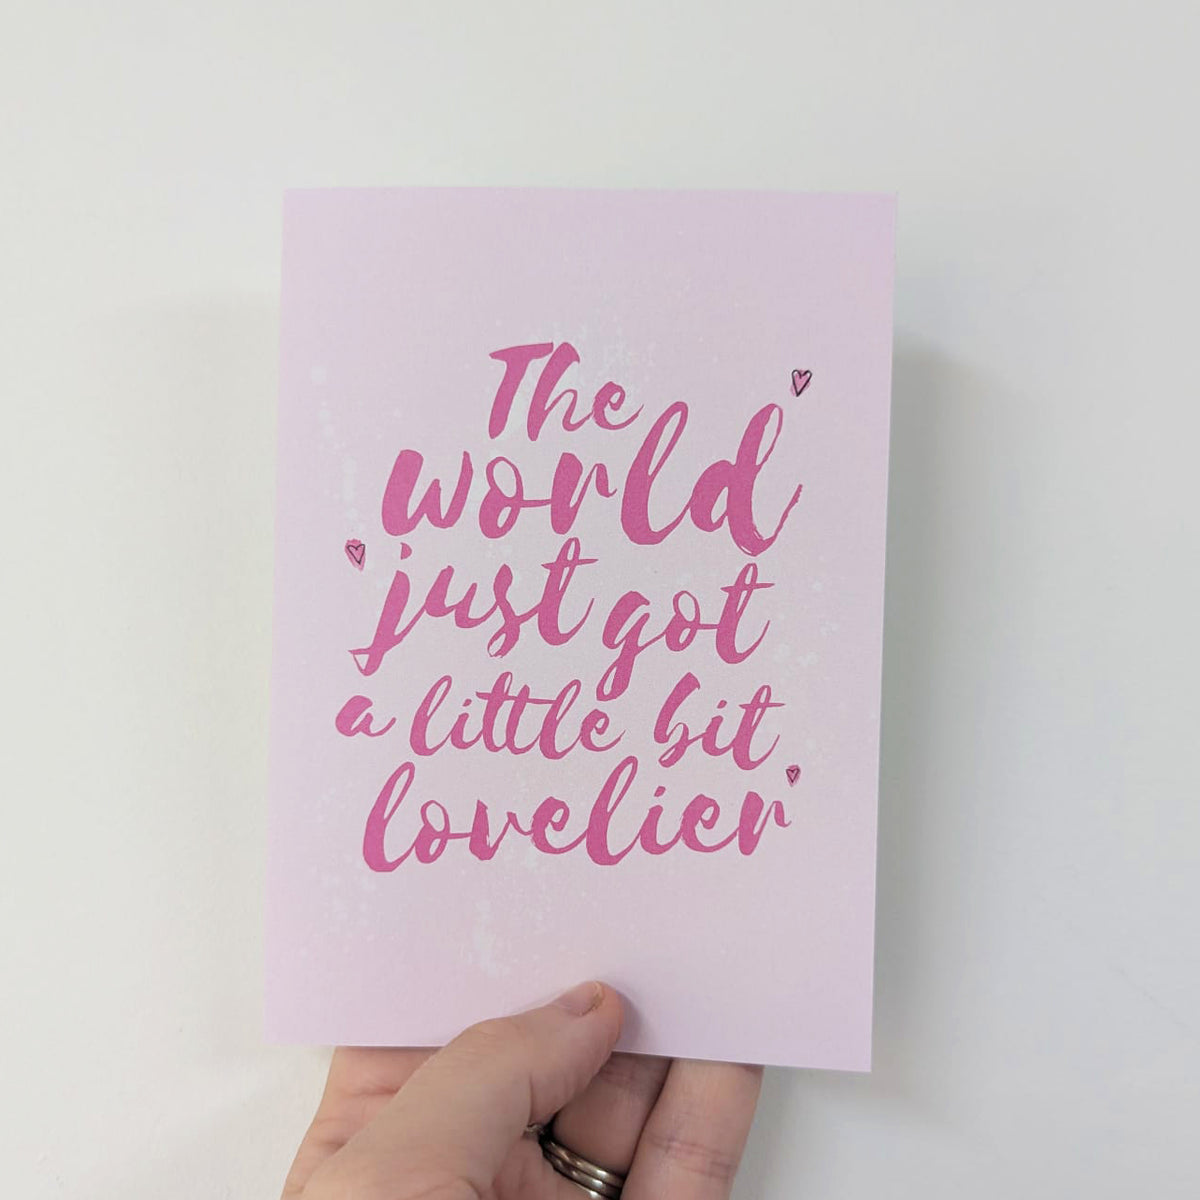 The
world
just got
a little bit
lovelier